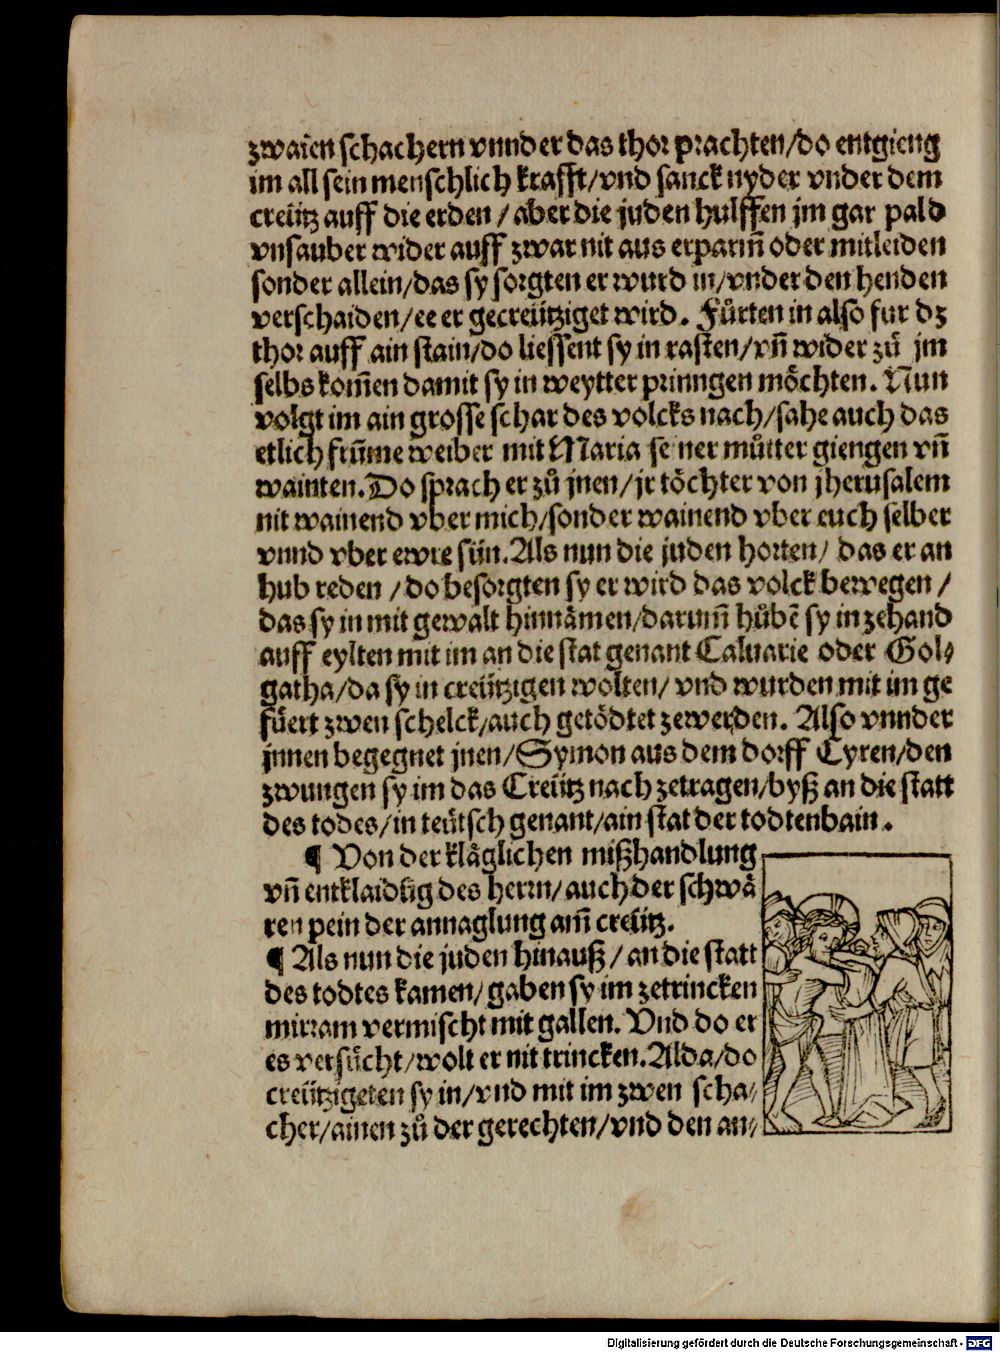 zwaiẽn schachern vnnd er das thor prachten/do entgieng
im all sein menschlich krafft/vnd sanck nyder vnder dem
creütz auff die erden / aber die juden hulffen jm gar pald
vnsauber wider auff zwar nit aus erparm̃ oder mitleiden
sonder allein/das sy sorgten er wurd in/vnder den henden
verschaiden/ee er gecreütziget wird. Fůrten in also fur dz
thor auff ain stain/do liessent sy in rasten/vñ wider zů jm
selbs kom̃en damit sy in weytter prinngen möchten. Nun
volgt im ain grosse schar des volcks nach/sahe auch das
etlich frum̃e weiber mit Maria se ner můtter giengen vñ
wainten. Do sprach er zů jnen/jr töchter von jherusalem
nit wainend vber mich/sonder wainend vber euch selber
vnnd vber ewre sün. Als nun die juden horten/ das er an
hub reden /do besorgten sy er wird das volck bewegen /
das sy in mit gewalt hinnämen/darum̃ hůbẽ sy in zehand
auff eylten mit im an die stat genant Caluarie oder Gol⸗
gatha/da sy in creützigen wolten/ vnd wurden mit im ge
füert zwen schelck/auch getödtet zewerden. Also vnnder
jnnen begegnet jnen/Symon aus dem dorff Cyren/den
zwungen sy im das Creütz nach zetragen/byß an die statt
des todes/in teütsch genant/ain stat der todtenbain.
¶ Von der kläglichen mißhandlung
vñ entklaidũg des herrn/auch der schwä
ren pein der annaglung am̃ creütz.
¶ Als nun die juden hinauß/an die statt
des todtes kamen/gaben sy im zetrincken
mirram vermischt mit gallen. Vnd do er
es versücht/wolt er nit trincken. Alda/do
creützigeten sy in/vnd mit im zwen scha⸗
cher/ainen zů der gerechten/vnd den an⸗
Digitalisierung gefördert durch die Deutsche Forschungsgemeinschaft - DFG